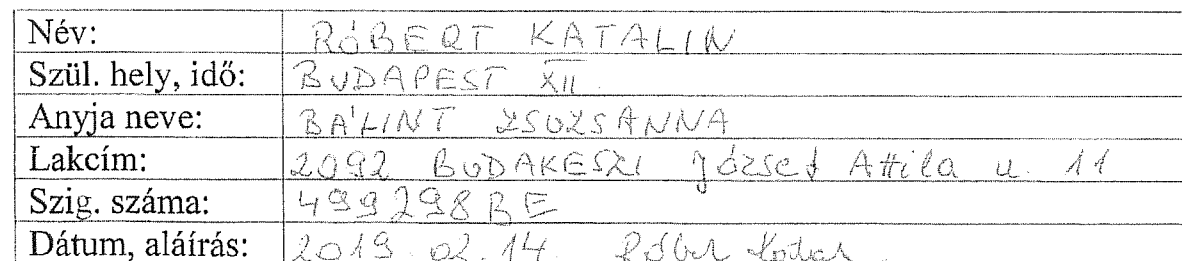 Név: RÓBERT KATALIN
Szül. hely, idő: BUDAPEST XII.
Anyja neve: BÁLINT ZSUZSANNA
Lakcím: 2092 BUDAKESZI József Attila u. 11
Szig. száma: 499298BE
Dátum, aláírás: 2019.02.14.